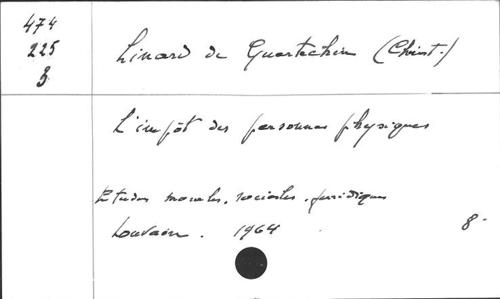 474
225
3
Linard de Guertechin (Christ.)
L'impôt des personnes physiques
Etudes morales, sociales, juridiques
Louvain. 1964 8°